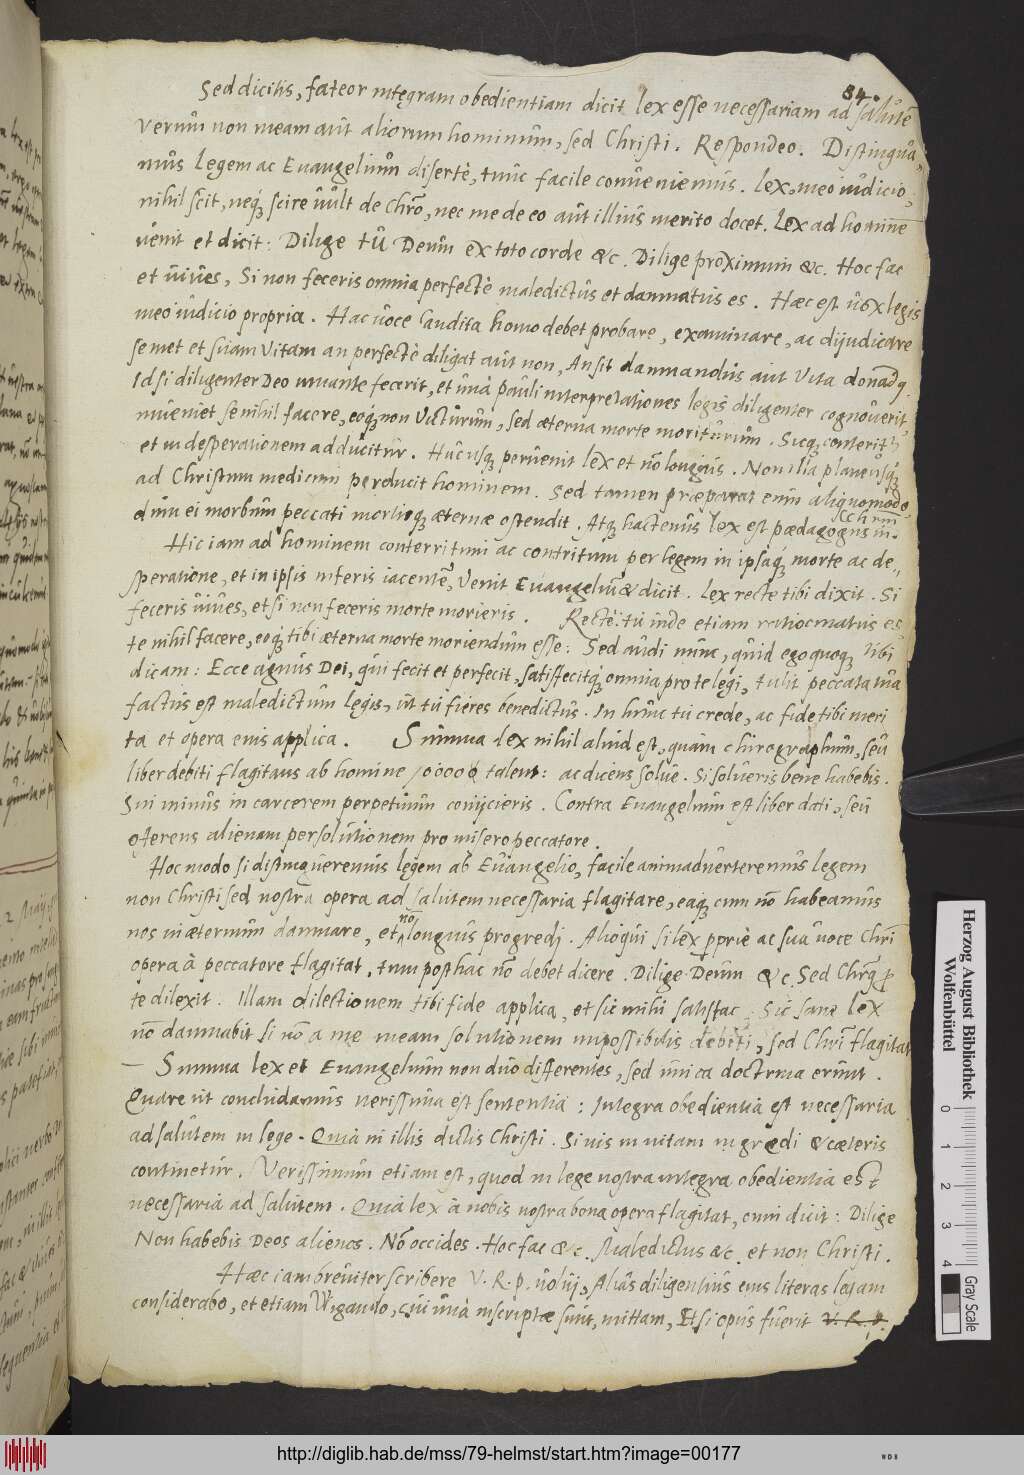 84.
Sed dicitis, fateor integram obedientiam dicit lex esse necessariam ad salutē
verum non meam aut aliorum hominum, sed Christi. Respondeo. Distingua
mus Legem ac Euangelium disertè, tunc facile conueniemus. Lex, meo iudicio,
nihil scit, neq; scire uult de Chrō, nec me de eo aut illius merito docet. Lex ad hominē
uenit et dicit: Dilige tu Deum ex toto corde &c. Dilige proximum &c. Hoc fac
et uiues, Si non feceris omnia perfectè maledictus et damnatus es. Haec est uox legis
meo iudicio propria. Hac uoce audita homo debet probare, examinare, ac dijudicare
semet et suam vitam an perfectè diligat aut non, An sit damnandus aut vita
Id si diligenter Deo iuuante fecerit, et unà Pauli interpretationes legis diligenter cognouerit,
inueniet se nihil facere, eoq; non victurum, sed aeterna morte moriturum. Sicq; conteritur
et in desperationem adducitur. Hucusq; peruenit lex et nō longius. Non illa planè usq;
ad Christum medicum perducit hominem. Sed tamen praeparat eum aliquomodo,
dum ei morbum peccati mortisq; aeternae ostendit. Atq; hactenus lex est paedagogus in
Chrm̄
Hic iam ad hominem conterritum ac contritum per legem in ipsaq; morte ac de-
speratione, et in ipsis inferis iacentē, Venit Euangeliū & dicit. Lex recte tibi dixit. Si
feceris uiues, et si non feceris morte morieris. Rectè tu inde etiam ratiocinatus es
te nihil facere, eoq; tibi aeterna morte moriendum esse: Sed audi nunc, quid ego quoq; tibi
dicam: Ecce agnus Dei, qui fecit et perfecit, satisfecitq; omnia pro te legi, tulit peccata tua
factus est maledictum legis, ut tu fieres benedictus. In hunc tu crede, ac fide tibi meri
ta et opera eius applica. Summa lex nihil aliud est, quàm chirographum, seu
liber debiti flagitans ab homine 10000 talent: ac dicens solue. Si solueris bene habebis.
Sin minus in carcerem perpetuum conijcieris. Contra Euangelium est liber dati, seu
offerens alienam persolutionem pro misero peccatore.
Hoc modo si distingueremus legem ab Euangelio, facile animaduerteremus legem
non Christi sed nostra opera ad salutem necessaria flagitare, eaq; cum nō habeamus
nos in aeternum damnare, et nō longius progredj. Alioqui si lex ppriè ac sua uoce Chri
opera à peccatore flagitat, tum posthac nō debet dicere. Dilige Deum &c. Sed Chrūs p
te dilexit. Illam dilectionem tibi fide applica, et sic mihi satisfac. Sic sane lex
nō damnabit si nō a me meam solutionem impossibilis debiti, sed Chri flagitat
Summa lex et Euangelium non duo differentes, sed unica doctrina erunt.
Quare ut concludamus uerissima est sententia: Integra obedientia est necessaria
ad salutem in lege. Quia in illis dictis Christi. Si uis in uitam ingredi & caeteris
continetur. Verissimum etiam est, quod in lege nostra integra obedientia est
necessaria ad salutem. Quia lex à nobis nostra bona opera flagitat, cum dicit: Dilige
Non habebis Deos alienos. Nō occides. Hoc fac &c. Maledictus &c. et non Christi.
Haec iam breuiter scribere V. R. P. uolui, Aliàs diligentius eius literas
considerabo, et etiam Wigando, cui unà inscriptae sunt, mittam, Et si opus fuerit V. R. P.
Herzog August Bibliothek
Wolfenbüttel
0 1 2 3 4
Gray Scale
http://diglib.hab.de/mss/79-helmst/start.htm?image=00177
WDB